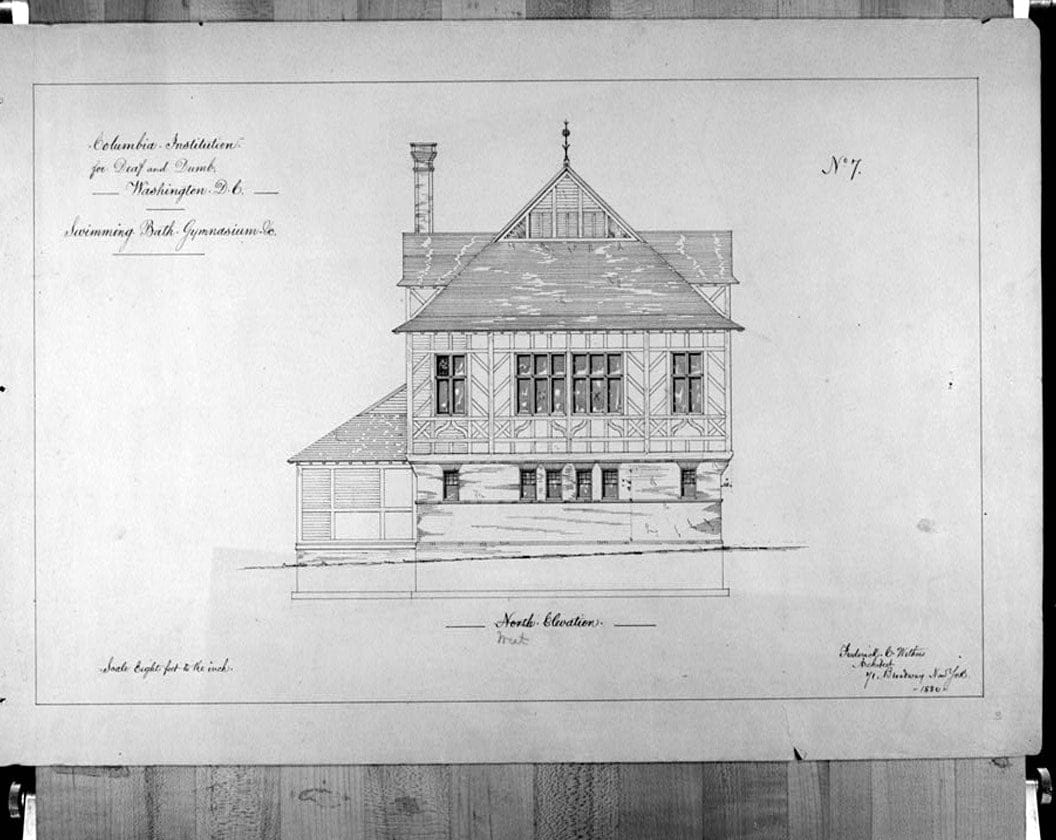 Columbia Institution
for Deaf and Dumb,
Washington D.C.
Swimming Bath Gymnasium &c.
No 7.
North Elevation.
West
Scale Eight feet to the inch.
Frederick C Withers
Architect
71 Broadway New York
- 1880 -
8